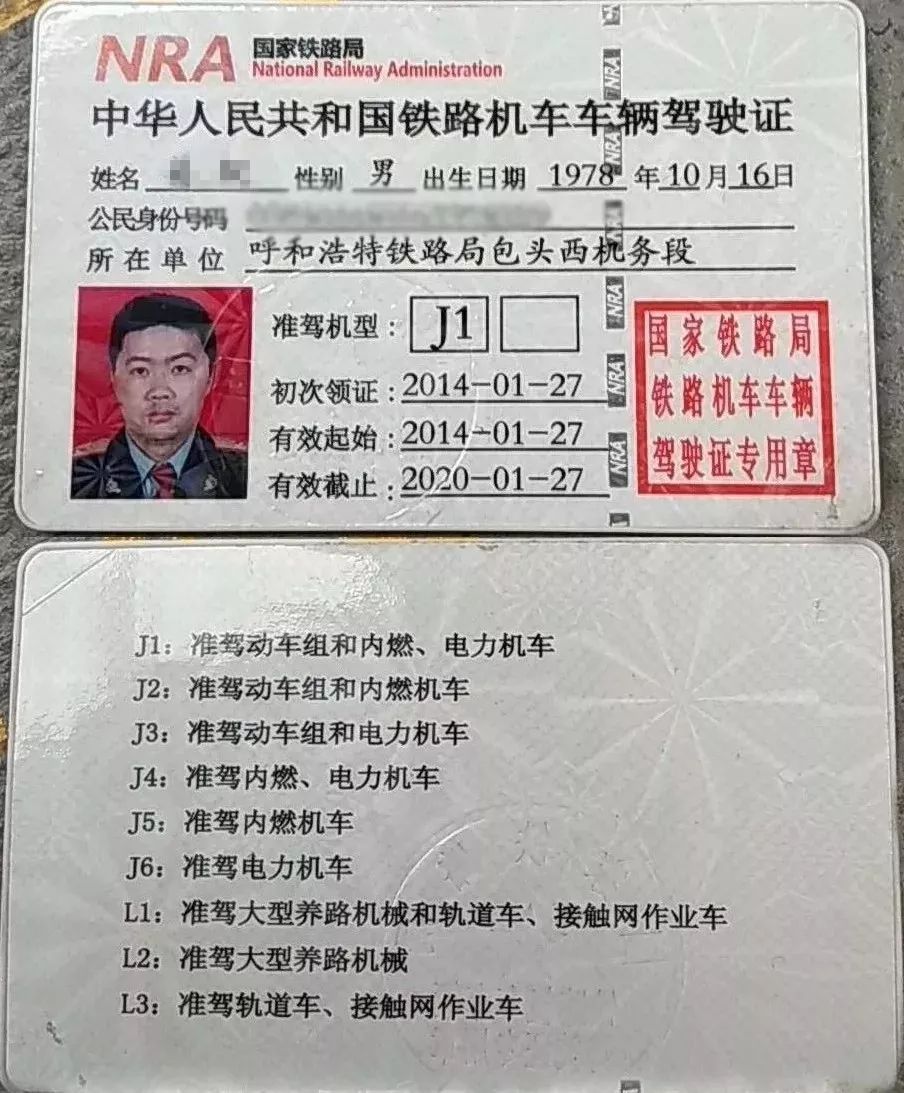 NRA 国家铁路局
National Railway Administration
中华人民共和国铁路机车车辆驾驶证
姓名 性别 男 出生日期 1978 年 10 月 16 日
公民身份号码
所在单位 呼和浩特铁路局包头西机务段
准驾机型: J1
初次领证: 2014-01-27
有效起始: 2014-01-27
有效截止: 2020-01-27
国家铁路局
铁路机车车辆
驾驶证专用章
NRA
NRA
NRA
NRA
NRA
NRA
J1: 准驾动车组和内燃、电力机车
J2: 准驾动车组和内燃机车
J3: 准驾动车组和电力机车
J4: 准驾内燃、电力机车
J5: 准驾内燃机车
J6: 准驾电力机车
L1: 准驾大型养路机械和轨道车、接触网作业车
L2: 准驾大型养路机械
L3: 准驾轨道车、接触网作业车